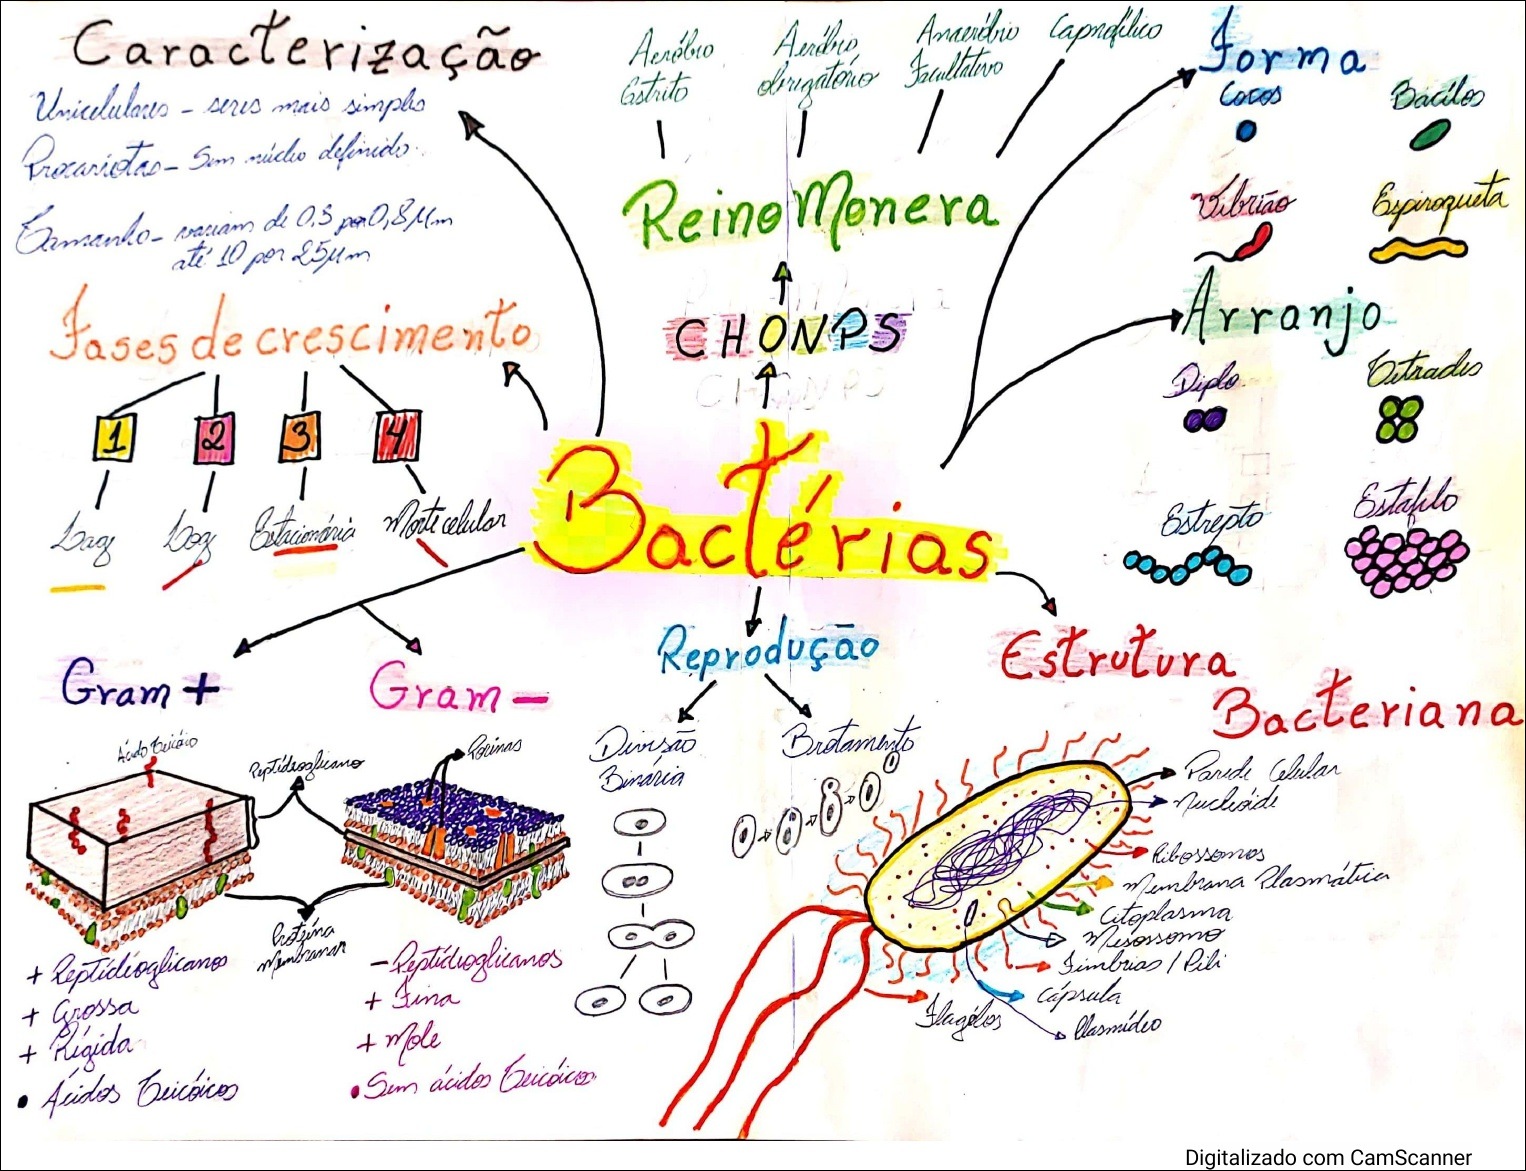 Caracterização
Unicelulares - seres mais simples
Procariotas - Sem núcleo definido.
Tamanho - variam de 0,3 por 0,8 µm
até 10 por 25 µm
Aeróbio
Estrito
Aeróbio
obrigatório
Anaeróbio
Facultativo
Capnofílico
Reino Monera
CHONPS
Forma
Cocos
Bacilos
Vibrião
Espiroqueta
Arranjo
Diplo
Tetrades
Estrepto
Estafilo
Fases de crescimento
1
2
3
4
Lag
Log
Estacionária
Morte celular
Bactérias
Gram +
Gram -
Ácido Teicóico
Peptídeoglicano
Porinas
Proteína
Membranar
+ Peptídioglicanos
+ Grossa
+ Rígida
• Ácidos Teicóicos
- Peptídioglicanos
+ Fina
+ Mole
• Sem ácidos Teicóicos
Reprodução
Divisão
Binária
Brotamento
Estrutura
Bacteriana
Parede Celular
Nucleóide
Ribossomos
Membrana Plasmática
Citoplasma
Mesossomo
Fimbrias / Pili
Cápsula
Flagélos
Plasmídeo
Digitalizado com CamScanner